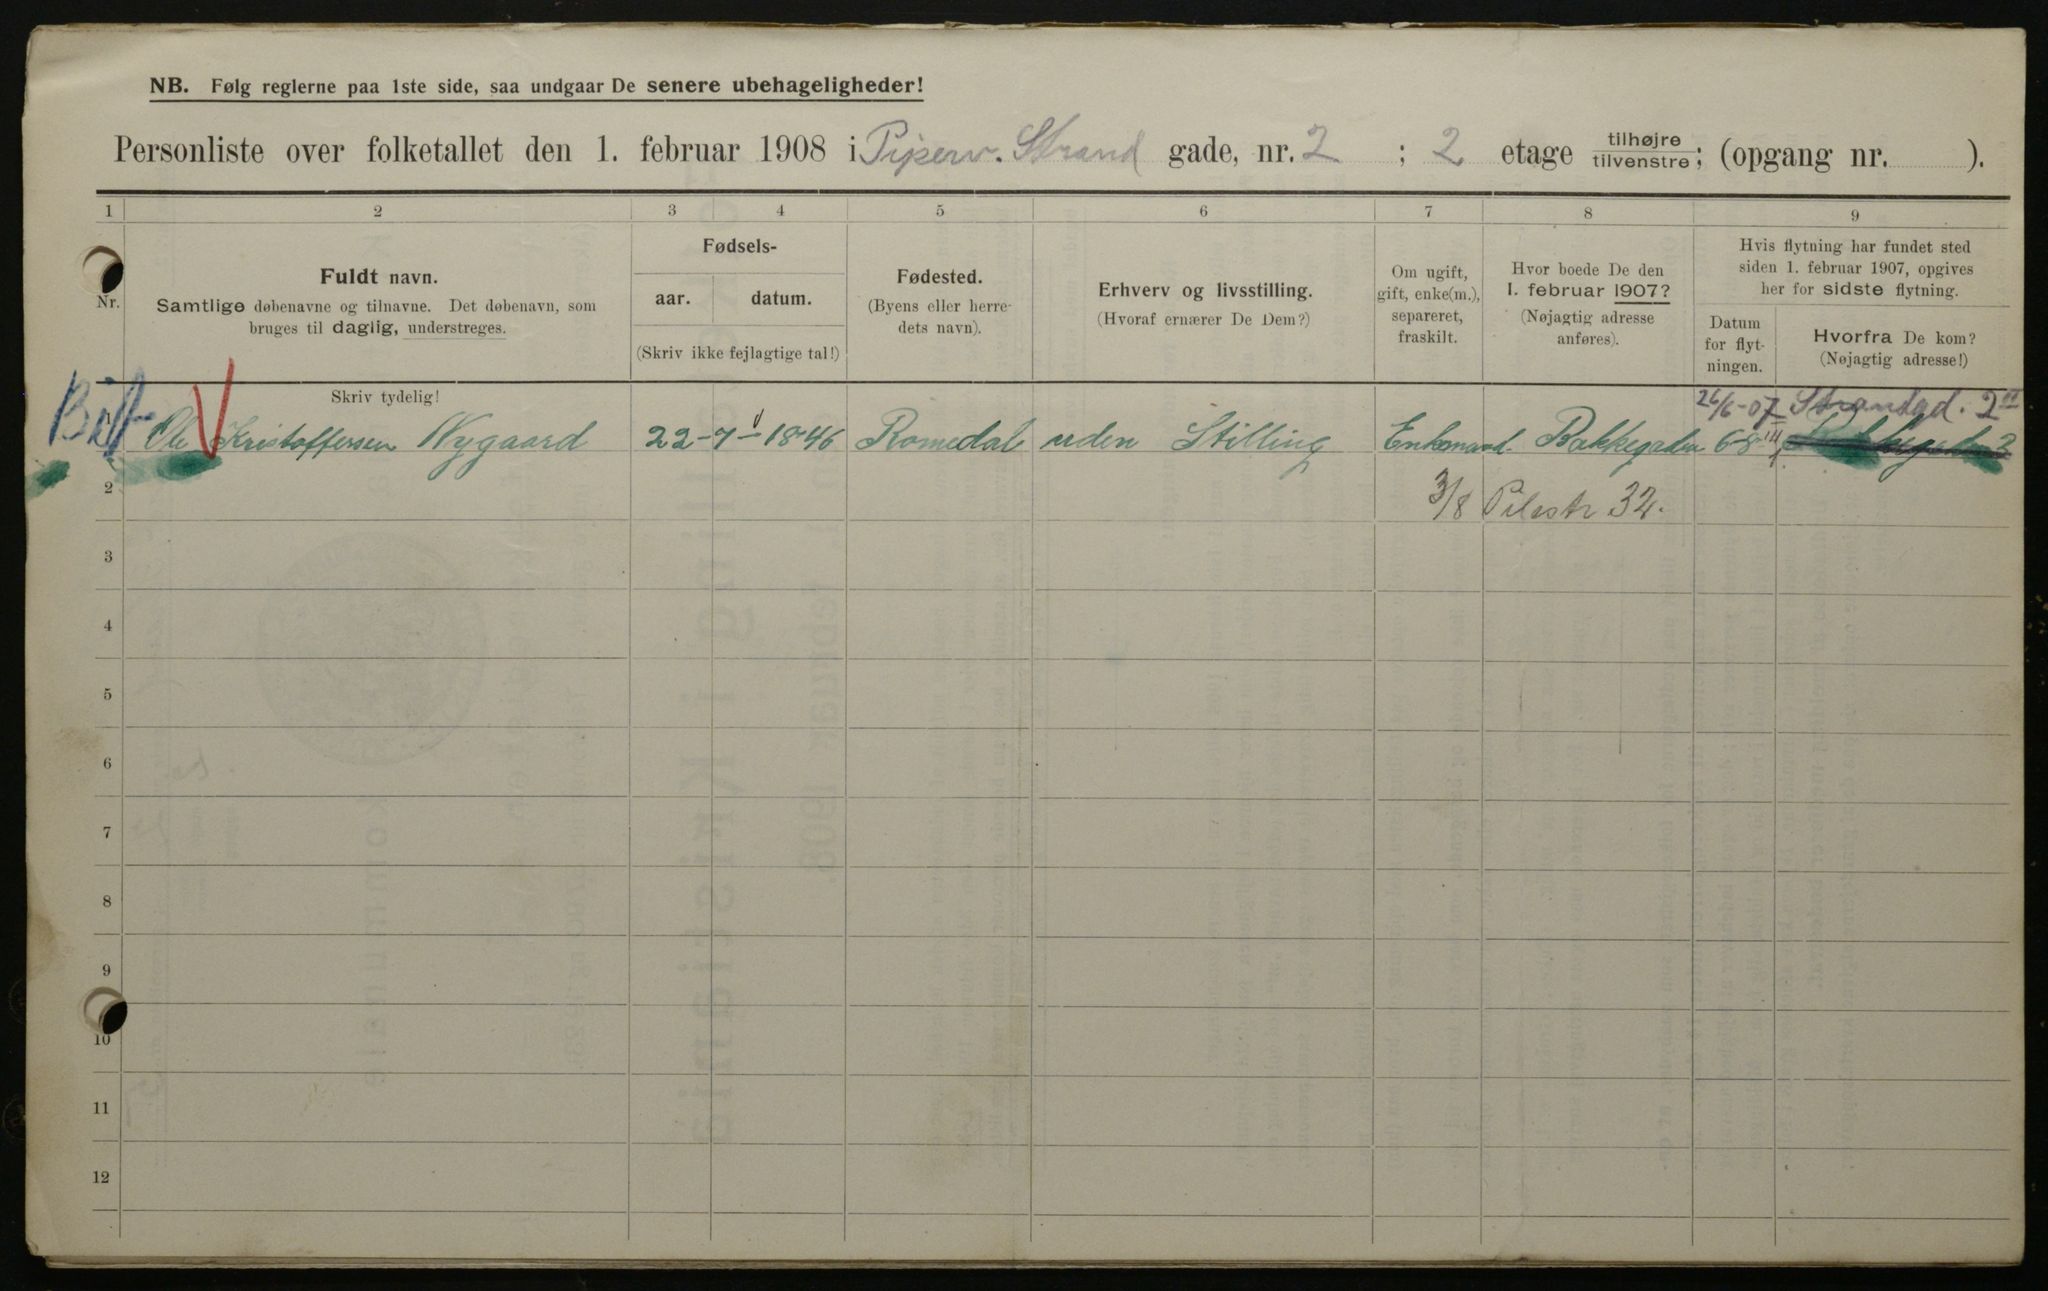 NB. Følg reglerne paa 1ste side, saa undgaar De senere ubehageligheder!
Personliste over folketallet den 1. februar 1908 i Piperv. Strand gade, nr. 2 ; 2 etage tilhøjre tilvenstre; (opgang nr. ).
1 2 3 4 5 6 7 8 9
Nr.
Fuldt navn.
Samtlige døbenavne og tilnavne. Det døbenavn, som
bruges til daglig, understreges.
Skriv tydelig!
Fødsels-
aar. datum.
(Skriv ikke fejlagtige tal!)
Fødested.
(Byens eller herre-
dets navn).
Erhverv og livsstilling.
(Hvoraf ernærer De Dem?)
Om ugift,
gift, enke(m.),
separeret,
fraskilt.
Hvor boede De den
1. februar 1907?
(Nøjagtig adresse
anføres).
Hvis flytning har fundet sted
siden 1. februar 1907, opgives
her for sidste flytning.
Datum
for flyt-
ningen.
Hvorfra De kom?
(Nøjagtig adresse!)
26/6-07 Strandgd. 2
Ole Kristoffersen Nygaard 22-7-1846 Romedal uden Stilling Enkemand. Bakkegaden 6-8
3/8 Pilestr 32.
2
3
4
5
6
7
8
9
10
11
12